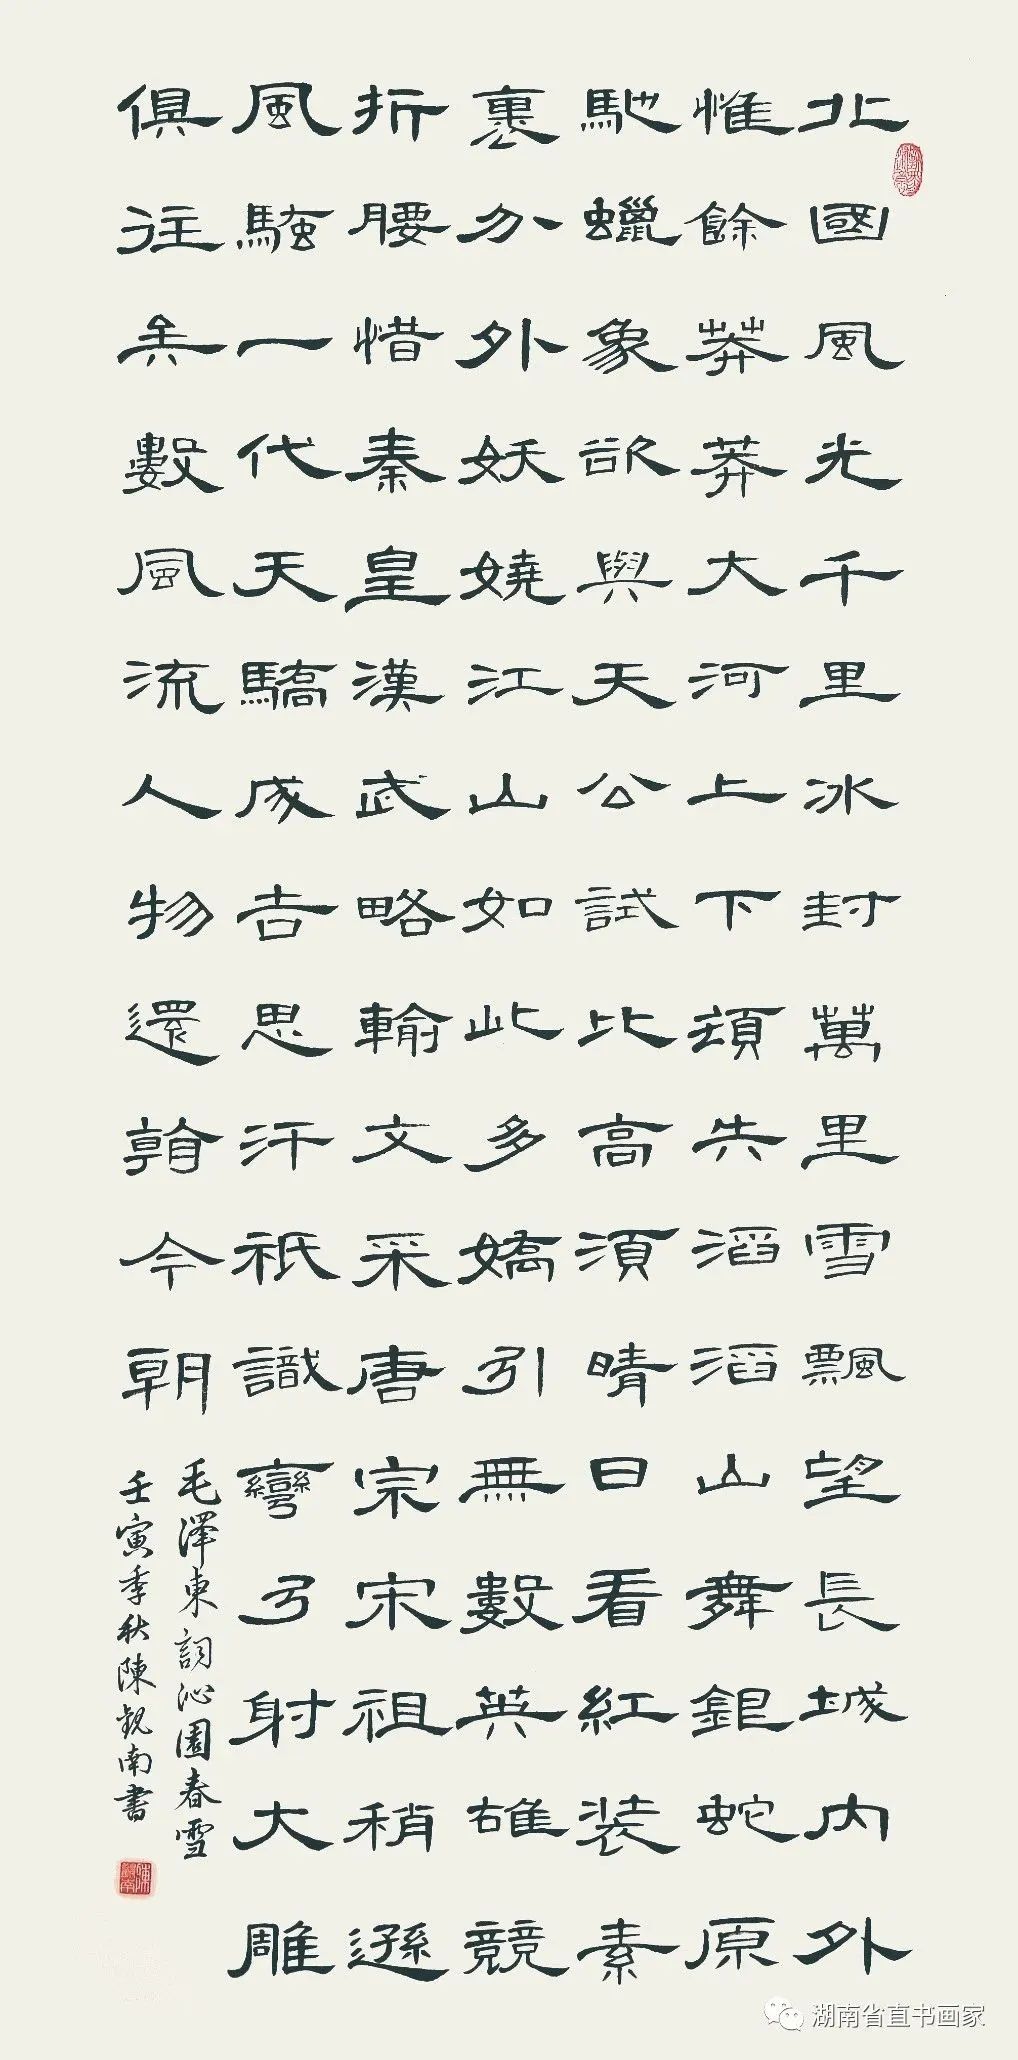 北國風光千里冰封萬里雪飄望長城内外
惟餘莽莽大河上下頓失滔滔山舞銀蛇原
馳蠟象欲與天公試比高須晴日看紅裝素
裹分外妖嬈江山如此多嬌引無數英雄競
折腰惜秦皇漢武略輸文采唐宗宋祖稍遜
風騷一代天驕成吉思汗祇識彎弓射大雕
俱往矣數風流人物還看今朝
毛澤東詞沁園春雪
壬寅季秋陳觀南書
湖南省直书画家